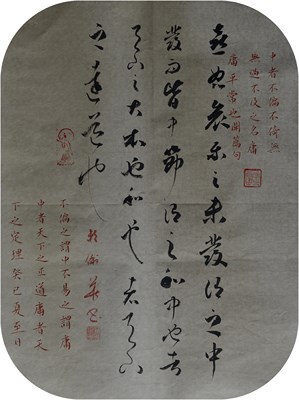 中者不偏不倚無
無過不及之名庸
庸平常也
喜怒哀乐之未發谓之中
發而皆中節谓之和中也者
天下之大本也和也者天下
之達道也
不偏之謂中不易之謂庸
中者天下之正道庸者天
下之定理癸巳夏至日